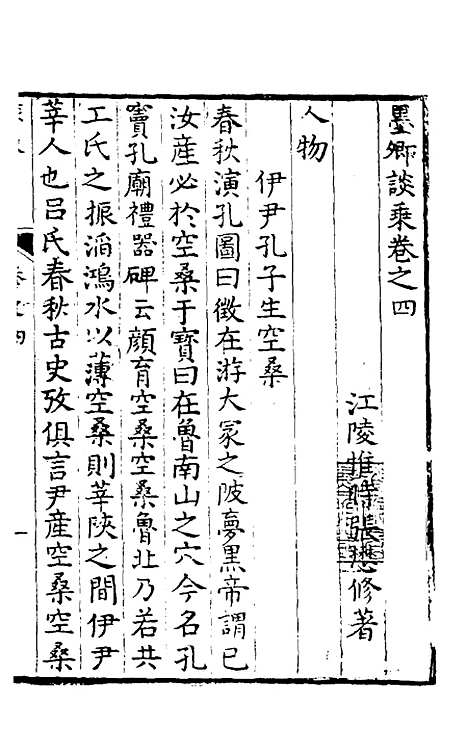 墨卿談乘卷之四
江陵惟時張懋修著
人物
伊尹孔子生空桑
春秋演孔圖曰徵在游大冢之陂夢黑帝謂已
汝産必於空桑于寶曰在魯南山之穴今名孔
竇孔廟禮器碑云顔育空桑空桑魯北乃若共
工氏之振滔鴻水以薄空桑則莘陝之間伊尹
莘人也吕氏春秋古史攷俱言尹産空桑空桑
卷之四
一